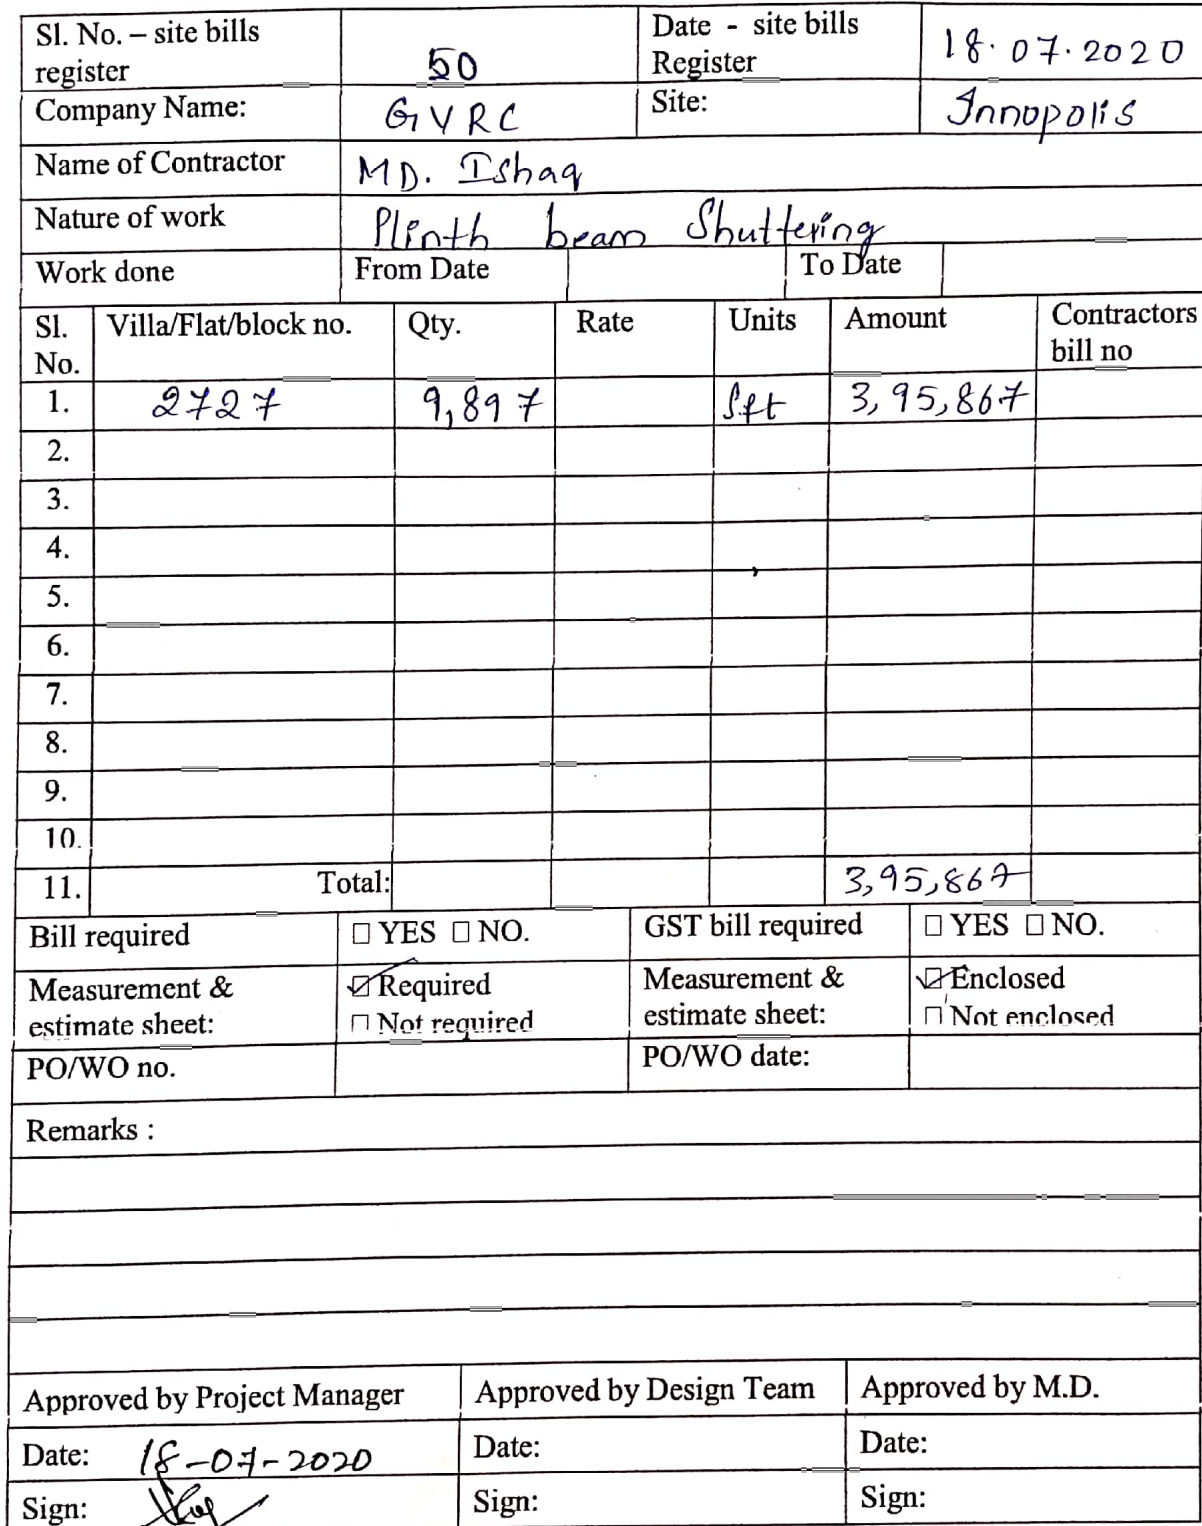 Sl. No. – site bills register 50 Date - site bills Register 18.07.2020
Company Name: GVRC Site: Innopolis
Name of Contractor MD. Ishaq
Nature of work Plinth beam Shuttering
Work done From Date To Date
Sl. No. Villa/Flat/block no. Qty. Rate Units Amount Contractors bill no
1. 2727 9,897 Sft 3,95,867
2.
3.
4.
5.
6.
7.
8.
9.
10.
11. Total: 3,95,867
Bill required ☐ YES ☐ NO. GST bill required ☐ YES ☐ NO.
Measurement & estimate sheet: ☑ Required ☐ Not required Measurement & estimate sheet: ☑ Enclosed ☐ Not enclosed
PO/WO no. PO/WO date:
Remarks :
Approved by Project Manager Approved by Design Team Approved by M.D.
Date: 18-07-2020 Date: Date:
Sign: Sign: Sign: